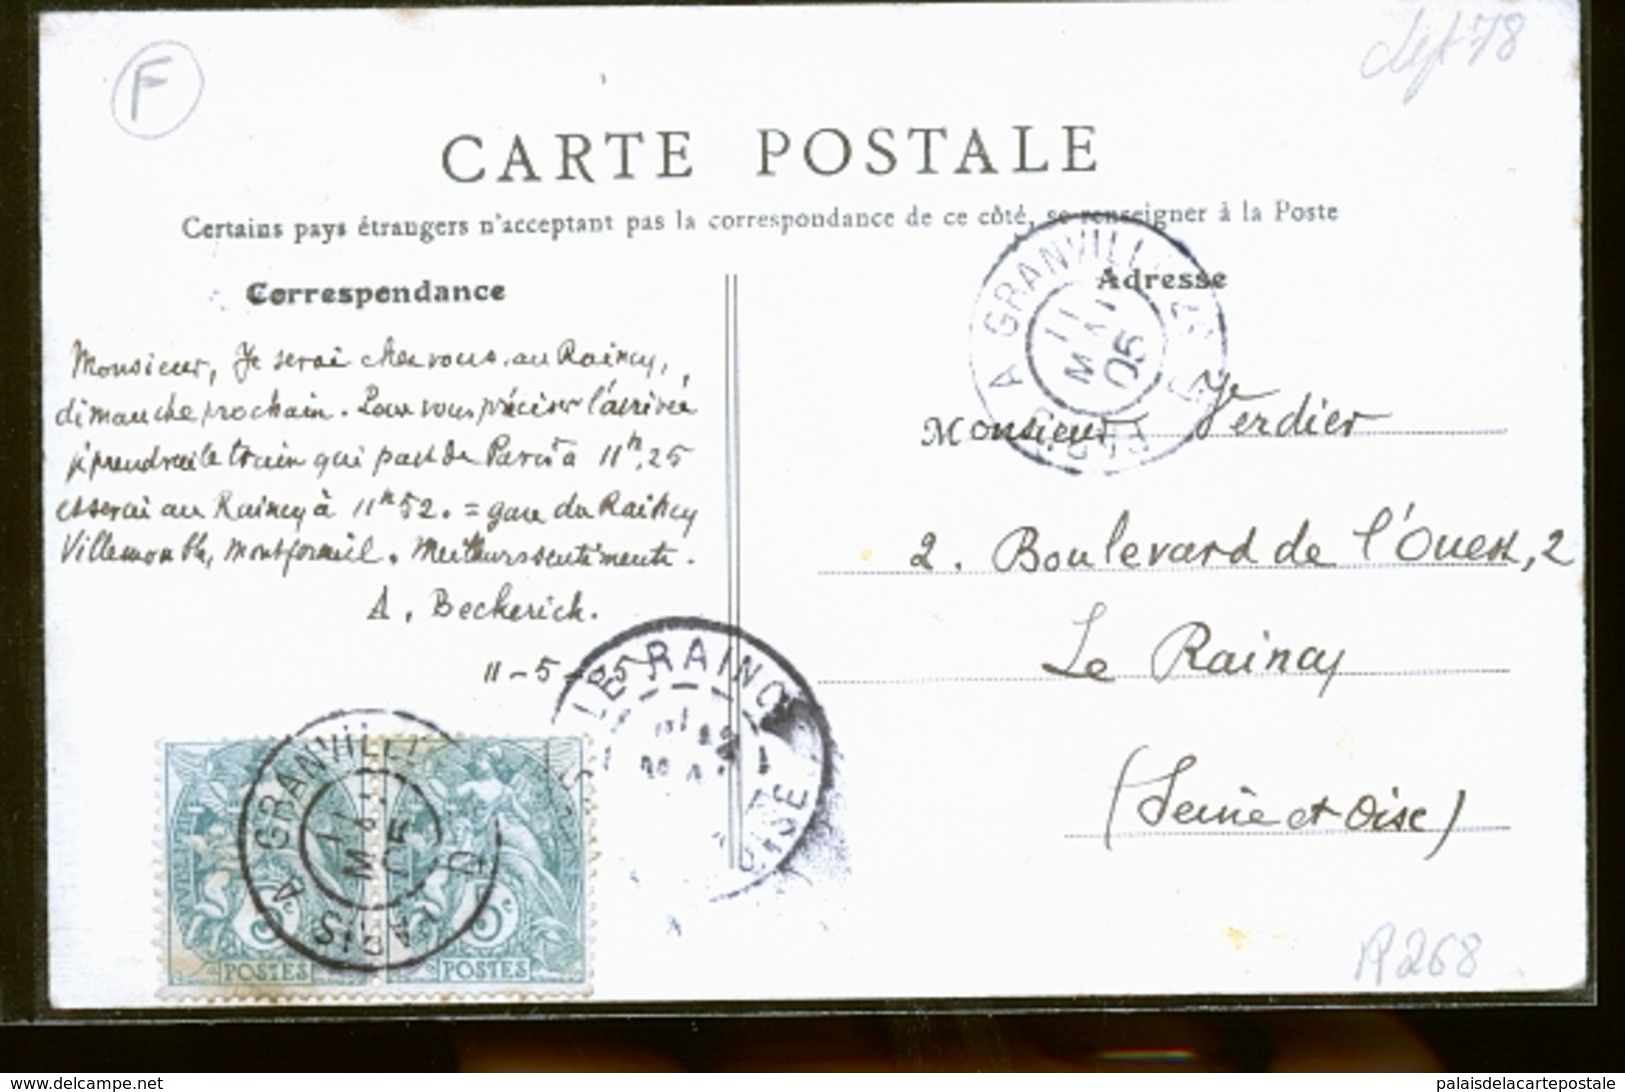 F
dept 78
CARTE POSTALE
Certains pays étrangers n'acceptant pas la correspondance de ce côté, se renseigner à la Poste
Correspondance
Adresse
Monsieur, Je serai chez vous, au Raincy,
dimanche prochain. Pour vous préciser l'arrivée
je prendrai le train qui part de Paris à 11h,25
et serai au Raincy à 11h52. = gare du Raincy
Villemomble, Montfermeil. Meilleurs sentiments.
A. Becherich.
11-5-05
Monsieur Verdier
2. Boulevard de l'Ouest, 2
Le Raincy
(Seine et Oise)
PARIS A GRANVILLE
11
MAI
05
LE RAINCY
OISE
PARIS A GRANVILLE
11
MAI
05
5c
POSTES
5c
POSTES
R268
www.delcampe.net
palaisdelacartepostale